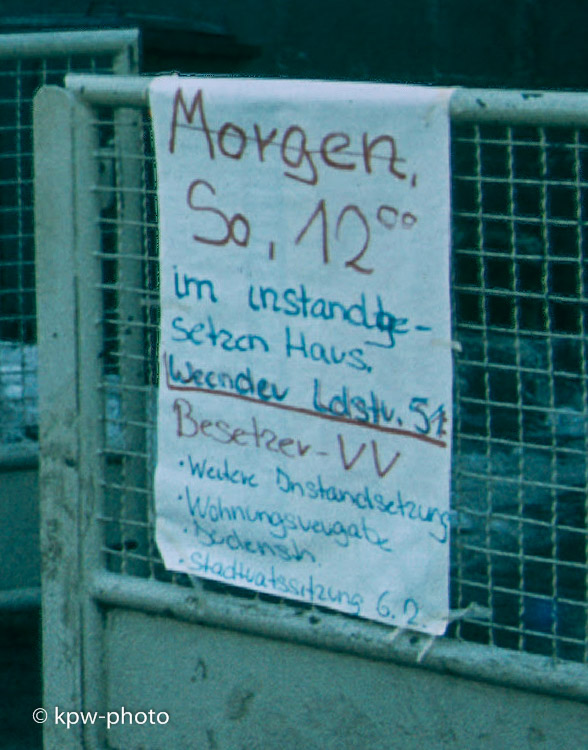 Morgen,
So, 12⁰⁰
im instandge-
setzen Haus,
Weender Ldstr.
Besetzer-VV
· Weitere Instandsetzung
· Wohnungsvergabe
·
· Stadtratssitzung 6.2.
© kpw-photo